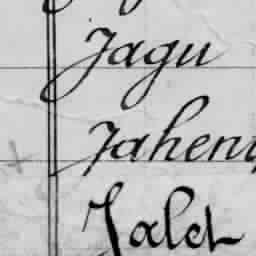 Jagu
Jaheny
Jalet